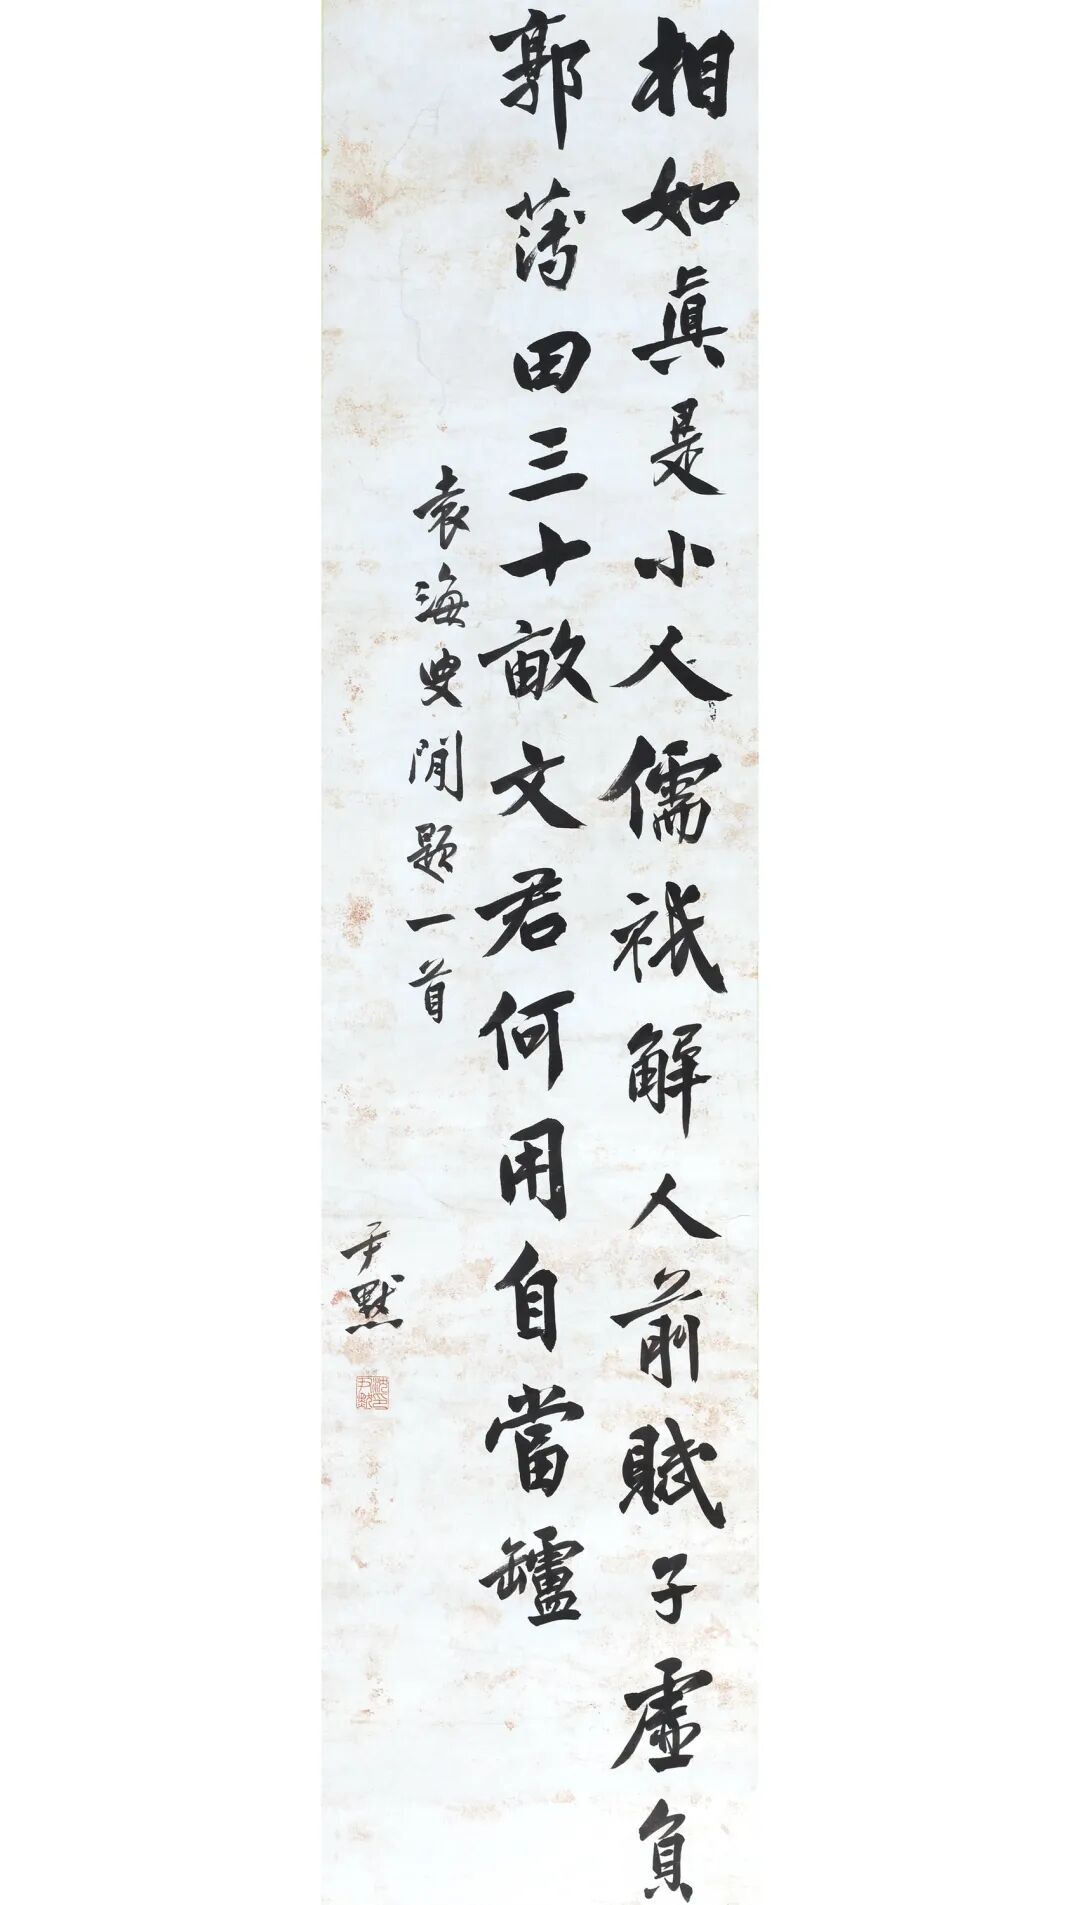 相如真是小人儒祇解人前賦子虛負
郭薄田三十畝文君何用自當罏
袁海叟閒題一首
尹默
沈尹默印